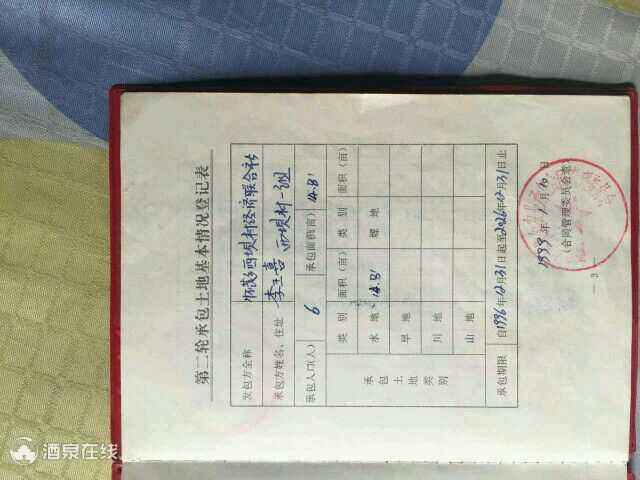 第二轮承包土地基本情况登记表
发包方全称 西坝村经济联合社
承包方姓名、住址 李玉喜 西坝村一组
承包人口(人) 6 承包面积(亩) 14.8
承包土地类别
类别 面积(亩) 类别 面积(亩)
水地 14.8 耕地
旱地
川地
山地
承包期限 自1996年12月31日起至2026年12月31日止
1999年1月10日
(合同管理委员会章)
— 3 —
酒泉在线